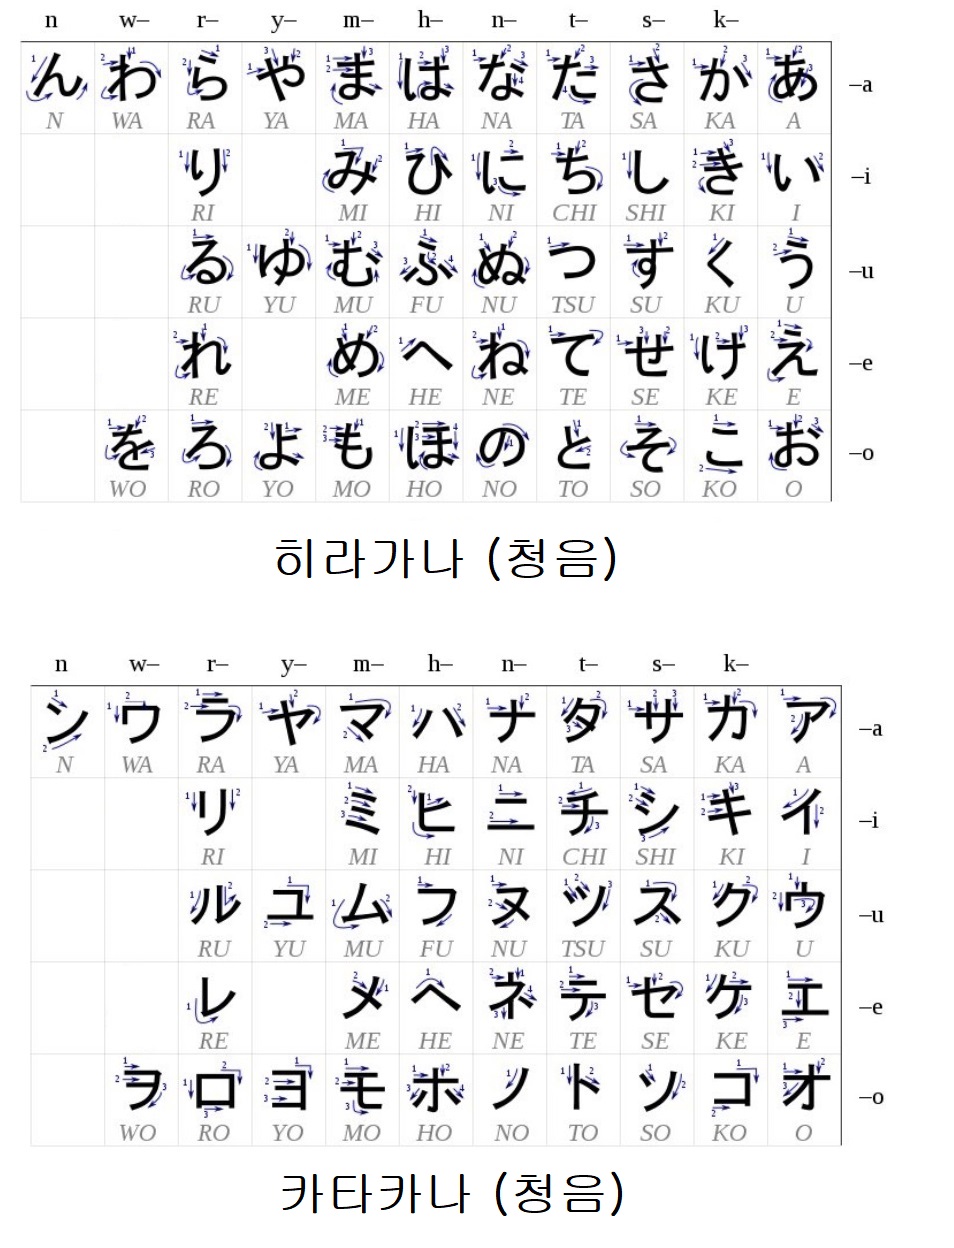 n w– r– y– m– h– n– t– s– k–
ん わ ら や ま は な た さ か あ –a
N WA RA YA MA HA NA TA SA KA A
り み ひ に ち し き い –i
RI MI HI NI CHI SHI KI I
る ゆ む ふ ぬ つ す く う –u
RU YU MU FU NU TSU SU KU U
れ め へ ね て せ け え –e
RE ME HE NE TE SE KE E
を ろ よ も ほ の と そ こ お –o
WO RO YO MO HO NO TO SO KO O
히라가나 (청음)
n w– r– y– m– h– n– t– s– k–
ン ワ ラ ヤ マ ハ ナ タ サ カ ア –a
N WA RA YA MA HA NA TA SA KA A
リ ミ ヒ ニ チ シ キ イ –i
RI MI HI NI CHI SHI KI I
ル ユ ム フ ヌ ツ ス ク ウ –u
RU YU MU FU NU TSU SU KU U
レ メ ヘ ネ テ セ ケ エ –e
RE ME HE NE TE SE KE E
ヲ ロ ヨ モ ホ ノ ト ソ コ オ –o
WO RO YO MO HO NO TO SO KO O
카타카나 (청음)